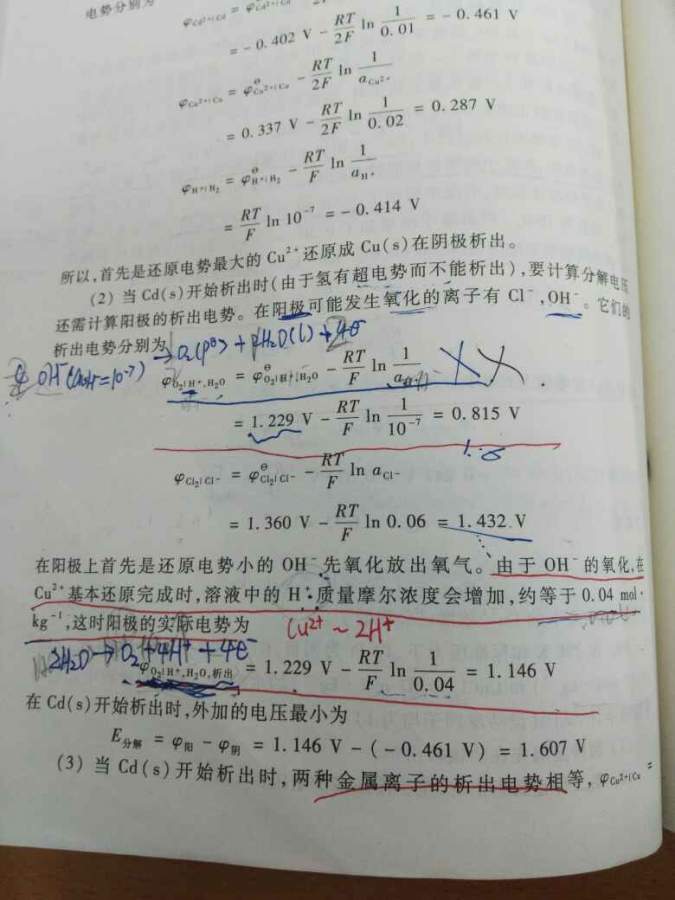 电势分别为
φCd²⁺|Cd = φ⊖Cd²⁺|Cd
= - 0. 402 V - RT/2F ln 1/0. 01 = - 0. 461 V
φCu²⁺|Cu = φ⊖Cu²⁺|Cu - RT/2F ln 1/aCu²⁺
= 0. 337 V - RT/2F ln 1/0. 02 = 0. 287 V
φH⁺|H₂ = φ⊖H⁺|H₂ - RT/F ln 1/aH⁺
= RT/F ln 10⁻⁷ = - 0. 414 V
所以,首先是还原电势最大的 Cu²⁺还原成 Cu(s)在阴极析出。
(2) 当 Cd(s)开始析出时(由于氢有超电势而不能析出),要计算分解电压
还需计算阳极的析出电势。在阳极可能发生氧化的离子有 Cl⁻,OH⁻。它们的
析出电势分别为
OH⁻(aOH⁻=10⁻⁷) → O₂(p⊖) + H₂O(l) +
φO₂|H⁺,H₂O = φ⊖O₂|H⁺,H₂O - RT/F ln 1/
= 1. 229 V - RT/F ln 1/10⁻⁷ = 0. 815 V
φCl₂|Cl⁻ = φ⊖Cl₂|Cl⁻ - RT/F ln aCl⁻
= 1. 360 V - RT/F ln 0. 06 = 1. 432 V
在阳极上首先是还原电势小的 OH⁻先氧化放出氧气。由于 OH⁻的氧化,在
Cu²⁺基本还原完成时,溶液中的 H⁺质量摩尔浓度会增加,约等于 0. 04 mol·
kg⁻¹,这时阳极的实际电势为
Cu²⁺ ~ 2H⁺
2H₂O → O₂ + 4H⁺ + 4e⁻
φO₂|H⁺,H₂O,析出 = 1. 229 V - RT/F ln 1/0. 04 = 1. 146 V
在 Cd(s)开始析出时,外加的电压最小为
E分解 = φ阳 - φ阴 = 1. 146 V - (- 0. 461 V) = 1. 607 V
(3) 当 Cd(s)开始析出时,两种金属离子的析出电势相等, φCu²⁺|Cu =